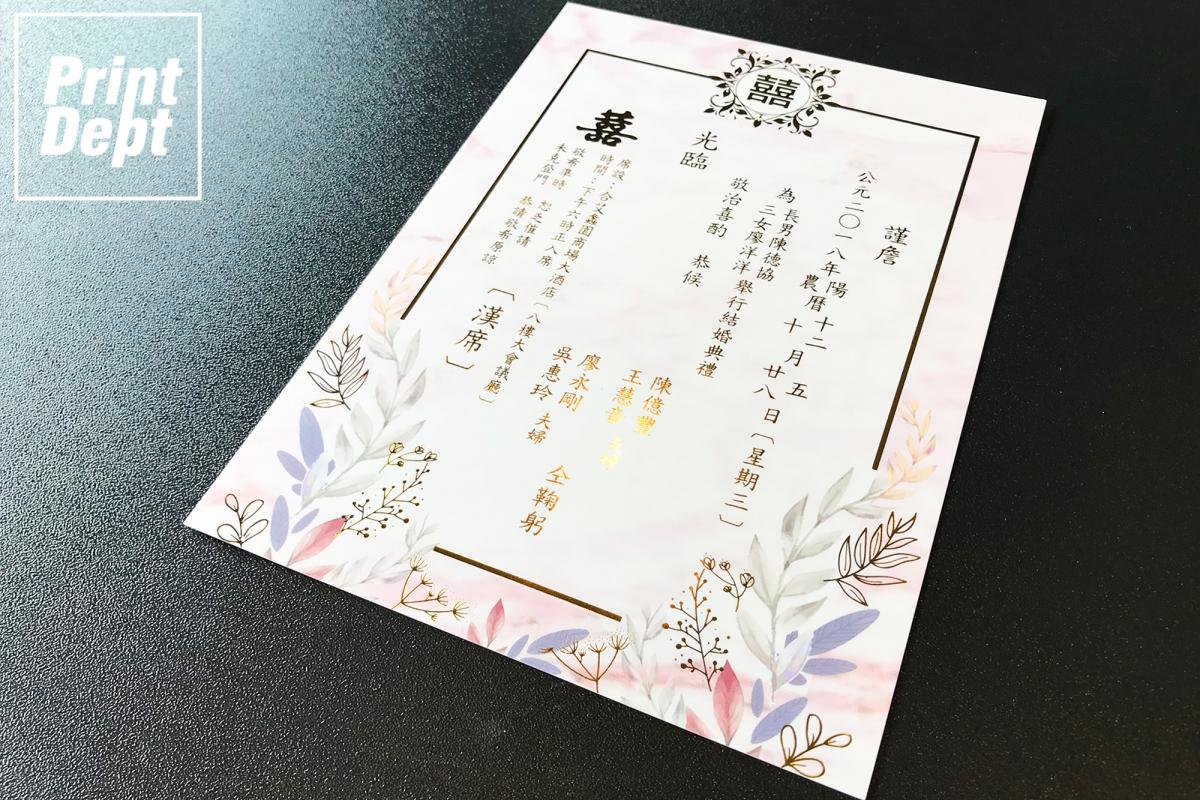 Print
Dept
囍
謹詹
公元二〇一八年陽曆十二月五日〔星期三〕
農曆十月廿八日
為長男陳德協
三女廖洋洋舉行結婚典禮
敬治喜酌 恭候
光臨
陳億豐
王慧音 夫婦
廖永剛
吳惠玲 夫婦 仝鞠躬
囍
席設：合艾鑫園商場大酒店〔八樓大會議廳〕
時間：下午六時正入席
敬希準時 恕乏催請
未克登門 恭請敬希原諒
〔漢席〕